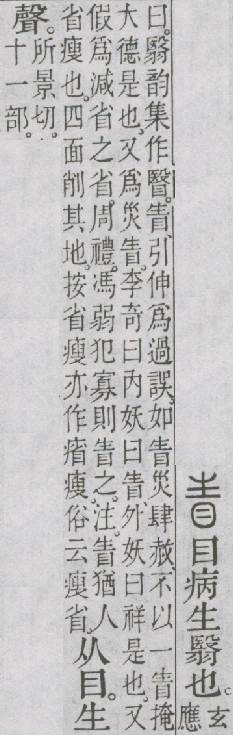 眚 目病生翳也。玄
應
曰。翳韵集作瞖。眚、引伸爲過誤。如眚災肆赦、不以一眚掩
大德是也。又爲災眚。李奇曰。內妖曰眚。外妖曰祥是也。又
假爲減省之省。周禮。馮弱犯寡則眚之。注。眚猶人
省瘦也。四面削其地。按省瘦亦作㾪瘦。俗云瘦省。
从目。生
聲。所景切。
十一部。